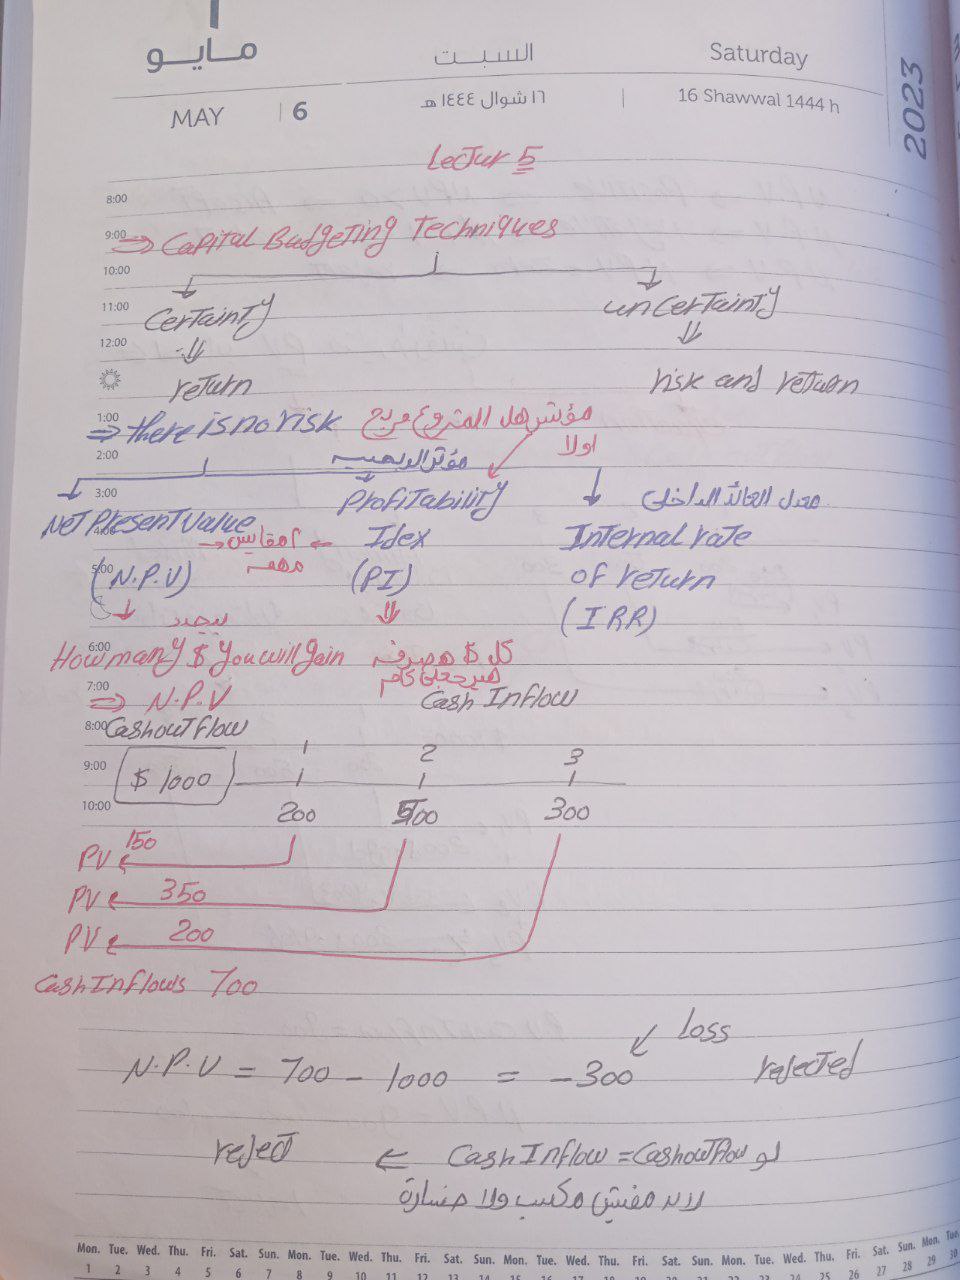 مايو
السبت
Saturday
MAY 6
١٦ شوال ١٤٤٤ هـ
16 Shawwal 1444 h
2023
Lectur 5
8:00
9:00 ⇒ Capital Budgeting Techniques
10:00
11:00 Certainty uncertainty
12:00 ⇓ ⇓
return risk and return
1:00 ⇒ there is no risk مؤشر هل المشروع مربح
2:00 مؤشر الربحيه اولا
3:00 Profitability معدل العائد الداخلى
Net Present Value
4:00 → ٢ مقايس ← Idex Internal rate
مهمه
5:00 (N.P.V) (PI) of return
(IRR)
بيحدد
6:00 How many $ you will gain كل $ هصرفه
هيرجعلى كام
7:00 ⇒ N.P.V Cash Inflow
8:00 Cashout flow
1 2 3
9:00 $ 1000
10:00 200 500 300
PV ← 150
PV ← 350
PV ← 200
Cash Inflows 700
Loss
N.P.V = 700 - 1000 = -300 rejected
لو Cash Inflow = Cashoutflow ← reject
لانه مفيش مكسب ولا خسارة
Mon. Tue. Wed. Thu. Fri. Sat. Sun. Mon. Tue. Wed. Thu. Fri. Sat. Sun. Mon. Tue. Wed. Thu. Fri. Sat. Sun. Mon. Tue. Wed. Thu. Fri. Sat. Sun. Mon. Tue.
1 2 3 4 5 6 7 8 9 10 11 12 13 14 15 16 17 18 19 20 21 22 23 24 25 26 27 28 29 30